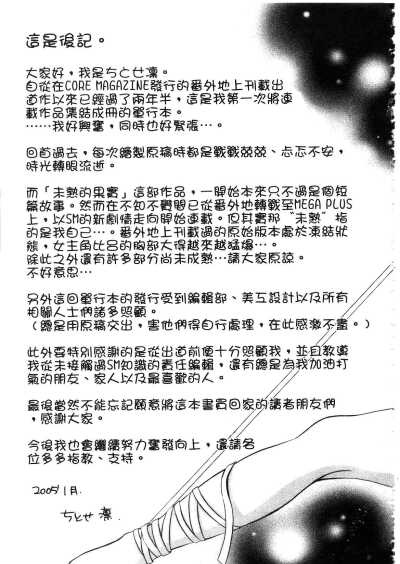 這是後記。
大家好，我是ちとせ凜。
自從在CORE MAGAZINE發行的番外地上刊載出
道作以來已經過了兩年半，這是我第一次將連
載作品集結成冊的單行本。
……我好興奮，同時也好緊張…。
回首過去，每次繪製原稿時都是戰戰兢兢、忐忑不安，
時光轉眼流逝。
而「未熟的果實」這部作品，一開始本來只不過是個短
篇故事。然而在不知不覺間已從番外地轉戰至MEGA PLUS
上，以SM的新劇情走向開始連載。但其實那“未熟”指
的是我自己…。番外地上刊載過的原始版本處於凍結狀
態，女主角比呂的胸部大得越來越猛爆…。
除此之外還有許多部分尚未成熟…請大家原諒。
不好意思…
另外這回單行本的發行受到編輯部、美工設計以及所有
相關人士們諸多照顧。
（總是用原稿突出，害他們得自行處理，在此感激不盡。）
此外要特別感謝的是從出道前便十分照顧我，並且教導
我從未接觸過SM知識的責任編輯，還有總是為我加油打
氣的朋友、家人以及最喜歡的人。
最後當然不能忘記願意將這本書買回家的讀者朋友們
，感謝大家。
今後我也會繼續努力奮發向上，還請各
位多多指教、支持。
2005／1月.
ちとせ 凜.